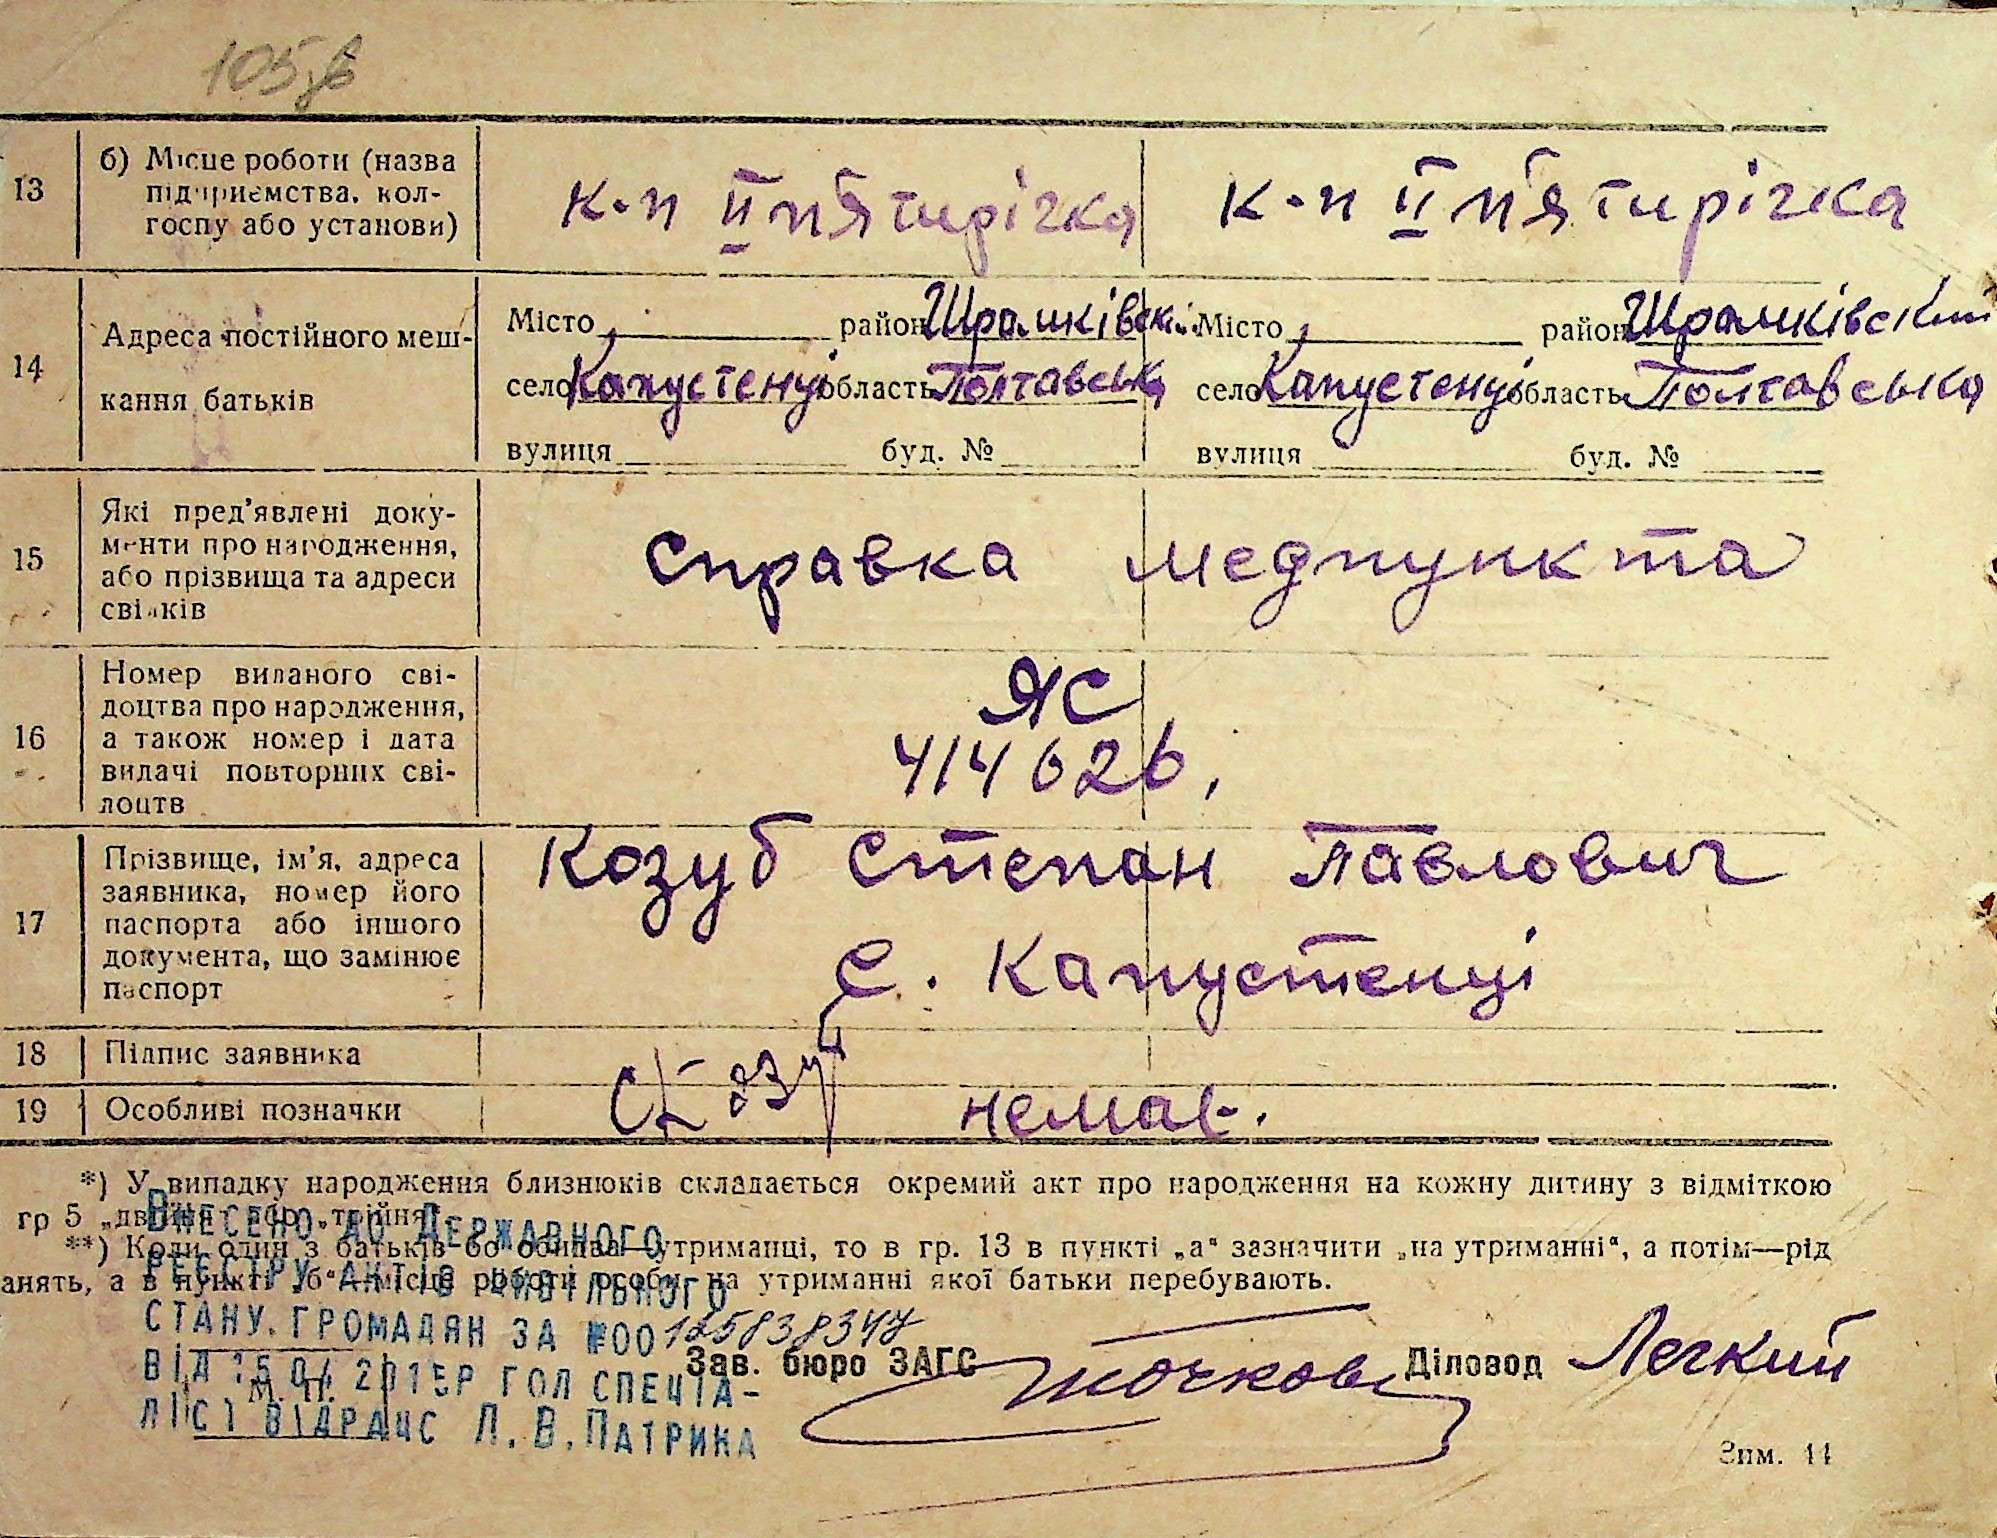 105
13
б) Місце роботи (назва
підприємства, кол-
госпу або установи)
к-п ІІ п'ятирічка
к-п ІІ п'ятирічка
14
Адреса постійного меш-
кання батьків
Місто район Шрамківськ
село Капустенці область Полтавська
вулиця буд. №
Місто район Шрамківский
село Капустенці область Полтавська
вулиця буд. №
15
Які пред'явлені доку-
менти про народження,
або прізвища та адреси
свідків
справка медпункта
16
Номер виданого сві-
доцтва про народження,
а також номер і дата
видачі повторних сві-
доцтв
ЯС
414626,
17
Прізвище, ім'я, адреса
заявника, номер його
паспорта або іншого
документа, що замінює
паспорт
Козуб Степан Павлович
с. Капустенці
18
Підпис заявника
19
Особливі позначки
немає.
*) У випадку народження близнюків складається окремий акт про народження на кожну дитину з відміткою
гр 5 „двійня" або „трійня"
**) Коли один з батьків бо обидва—утриманці, то в гр. 13 в пункті „а" зазначити „на утриманні", а потім—рід
анять, а в пункті „б"—місце роботи особи, на утриманні якої батьки перебувають.
ВНЕСЕНО ДО ДЕРЖАВНОГО
РЕЄСТРУ АКТІВ ЦИВІЛЬНОГО
СТАНУ. ГРОМАДЯН ЗА №00125838347
ВІД 15 04 2015Р ГОЛ СПЕЦІА-
ЛІСТ ВІДРАЦС Л.В.ПАТРИКА
М. П.
Зав. бюро ЗАГС Точков
Діловод Легкий
Зим. 44